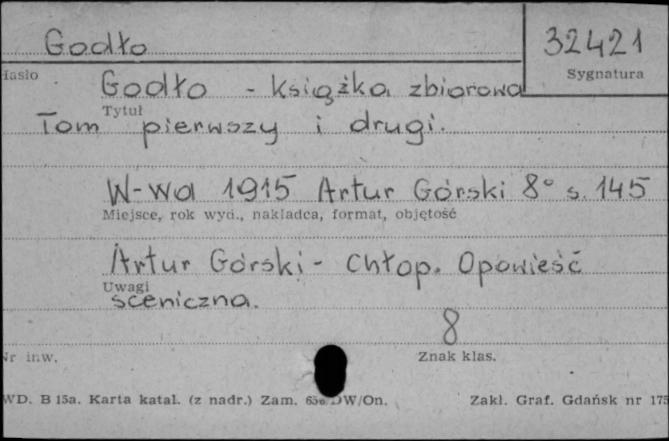 Godło
32421
Hasło
Sygnatura
Godło - Książka zbiorowa
Tytuł
Tom pierwszy i drugi.
W-wa 1915 Artur Górski 8° s. 145
Miejsce, rok wyd., nakładca, format, objętość
Artur Górski - Chłop. Opowieść
Uwagi
sceniczna.
8
Nr inw.
Znak klas.
WD. B 15a. Karta katal. (z nadr.) Zam. DW/On.
Zakł. Graf. Gdańsk nr 175